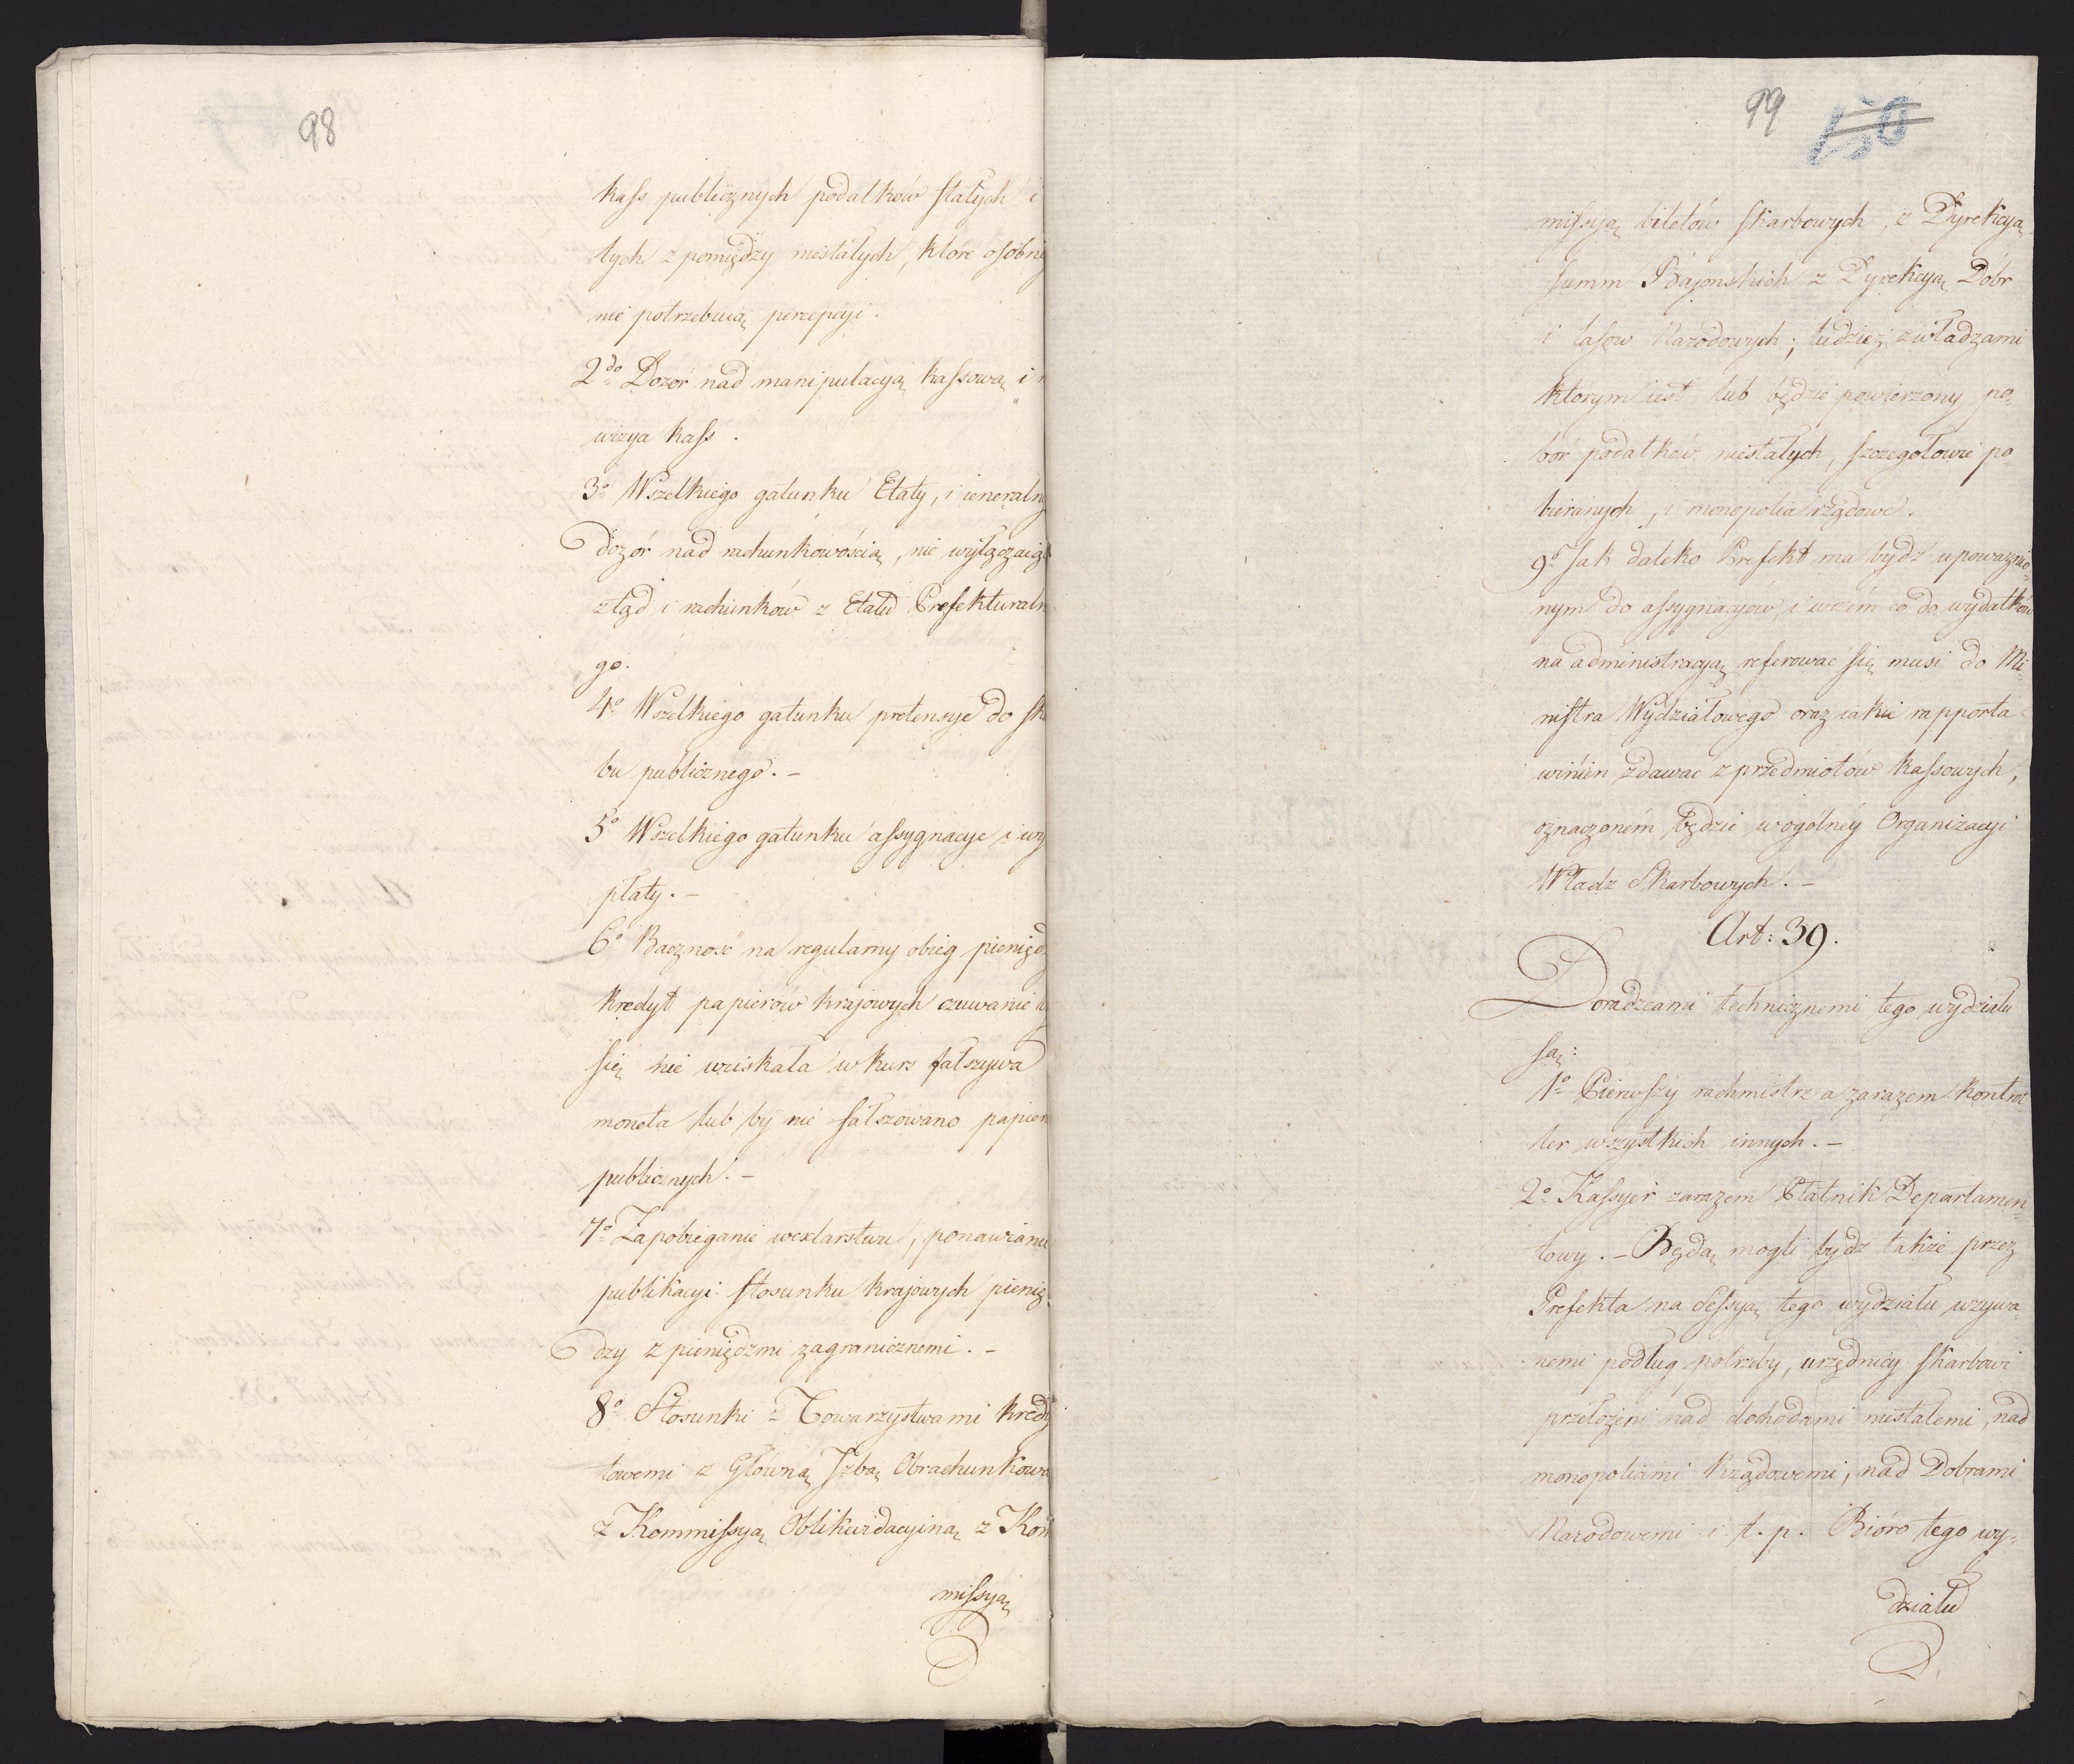 98
kass publicznych podatków stałych i
tych z pomiędzy niestałych, ktore osobn
nie potrzebuią percepcyi.
2do Dozor nad manipulacyą kassową i r
wizya kass.
3o Wszelkiego gatunku Etaty, i ieneraln
dozór nad rachunkowością, nie wyłączaią
ztąd i rachunków z Etatu Prefekturaln
go.
4o Wszelkiego gatunku pretensye do ska
bu publicznego. –
5o Wszelkiego gatunku assygnacye i wy
płaty. –
6o Baczność na regularny obieg pienięd
kredyt papierów krajowych czuwanie
się nie wciskała w kurs fałszywa
moneta lub by nie fałszowano papier
publicznych. –
7o Zapobieganie wexlarstwu, ponawianie
publikacyi stosunku krajowych pienię
dzy z pieniędzmi zagranicznemi. –
8o Stosunki z Towarzystwami kredy
towemi z Główną Izbą Obrachunkową
z Kommissyą Oblikwidacyiną z Kom
missyą
99
150
missyą biletów skarbowych, z Dyrekcyą
summ Bajonskich z Dyrekcyą Dóbr
i lasow Narodowych; tudzież z władzami
ktorym iest lub będzie powierzony po=
bór podatków niestałych, szczegołowie po
bieranych, i monopolia rządowe.
9o Jak daleko Prefekt ma bydź upoważnio=
nym do assygnacyów, i w czém co do wydatków
na administracyą referować się musi do Mi=
nistra Wydziałowego oraz iakie rapporta
winien zdawać z przedmiotów kassowych,
oznaczoném będzie w ogólnéy Organizacyi
Władz Skarbowych. –
Art: 39.
Doradzcami technicznemi tego wydziału
są:
1o Pierwszy rachmistrz a zarazem kontrol
ler wszystkich innych. –
2o Kassyer zarazem Płatnik Departamen=
towy. – Będą mogli bydź także przez
Prefekta na Sessyą tego wydziału używa=
nemi podług potrzeby, urzędnicy skarbowi
przełożeni nad dochodami niestałemi, nad
monopoliami Rządowemi, nad Dobrami
Narodowemi i t. p. Bióro tego wy=
działu